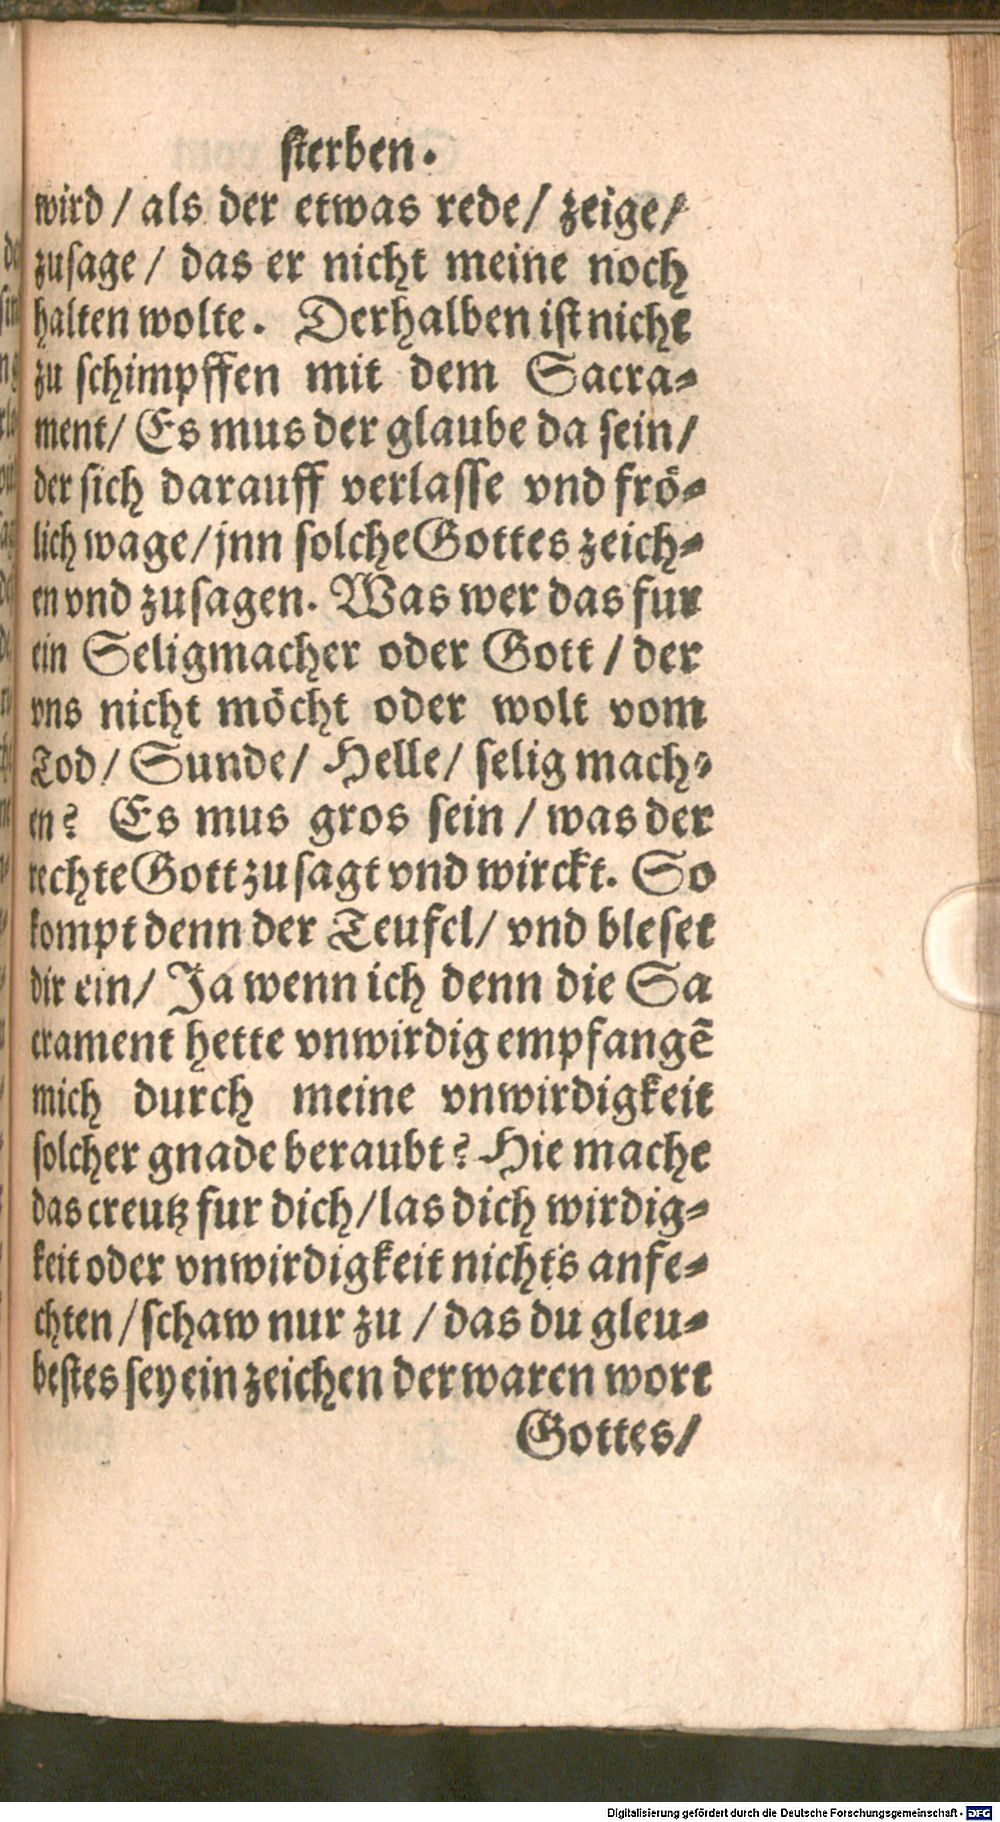 sterben.
wird / als der etwas rede / zeige /
zusage / das er nicht meine noch
halten wolte. Derhalben ist nicht
zu schimpffen mit dem Sacra-
ment / Es mus der glaube da sein /
der sich darauff verlasse vnd frö-
lich wage / jnn solche Gottes zeich-
en vnd zusagen. Was wer das fur
ein Seligmacher oder Gott / der
vns nicht möcht oder wolt vom
Tod / Sunde / Helle / selig mach-
en? Es mus gros sein / was der
rechte Gott zusagt vnd wirckt. So
kompt denn der Teufel / vnd bleset
dir ein / Ja wenn ich denn die Sa
crament hette vnwirdig empfangē
mich durch meine vnwirdigkeit
solcher gnade beraubt? Hie mache
das creutz fur dich / las dich wirdig-
keit oder vnwirdigkeit nichts anfe-
chten / schaw nur zu / das du gleu-
best es sey ein zeichen der waren wort
Gottes /
Digitalisierung gefördert durch die Deutsche Forschungsgemeinschaft - DFG